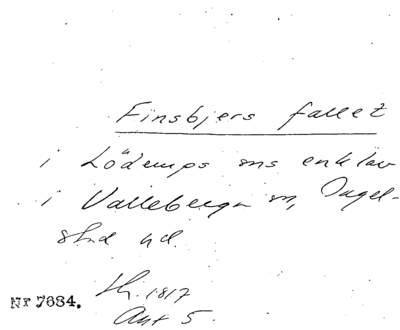 Finsbjers fallet
i Löderups sns enklav
i Valleberga sn, Ingel-
stad hd.
Nr 7684.
1817
Akt 5.